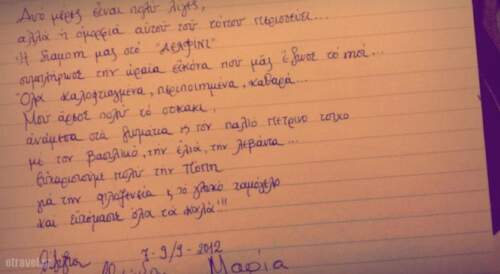 Δυό μέρες είναι πολύ λίγες,
αλλά η ομορφιά αυτού του τόπου περισσεύει...
Η διαμονή μας στο "ΔΕΛΦΙΝΙ"
συμπλήρωσε την ωραία εικόνα που μας έδωσε το νησί...
Όλα καλοφτιαγμένα, περιποιημένα, καθαρά...
Μου άρεσε πολύ το σοκάκι
ανάμεσα στα δωμάτια & τον παλιό πέτρινο τοίχο
με τον βασιλικό, την ελιά, την λεβάντα...
Ευχαριστούμε πολύ την Πόπη
για την φιλοξενία & το γλυκό χαμόγελο
και ευχόμαστε όλα τα καλά!!!
7-9/9-2012
Μαρία
etravel